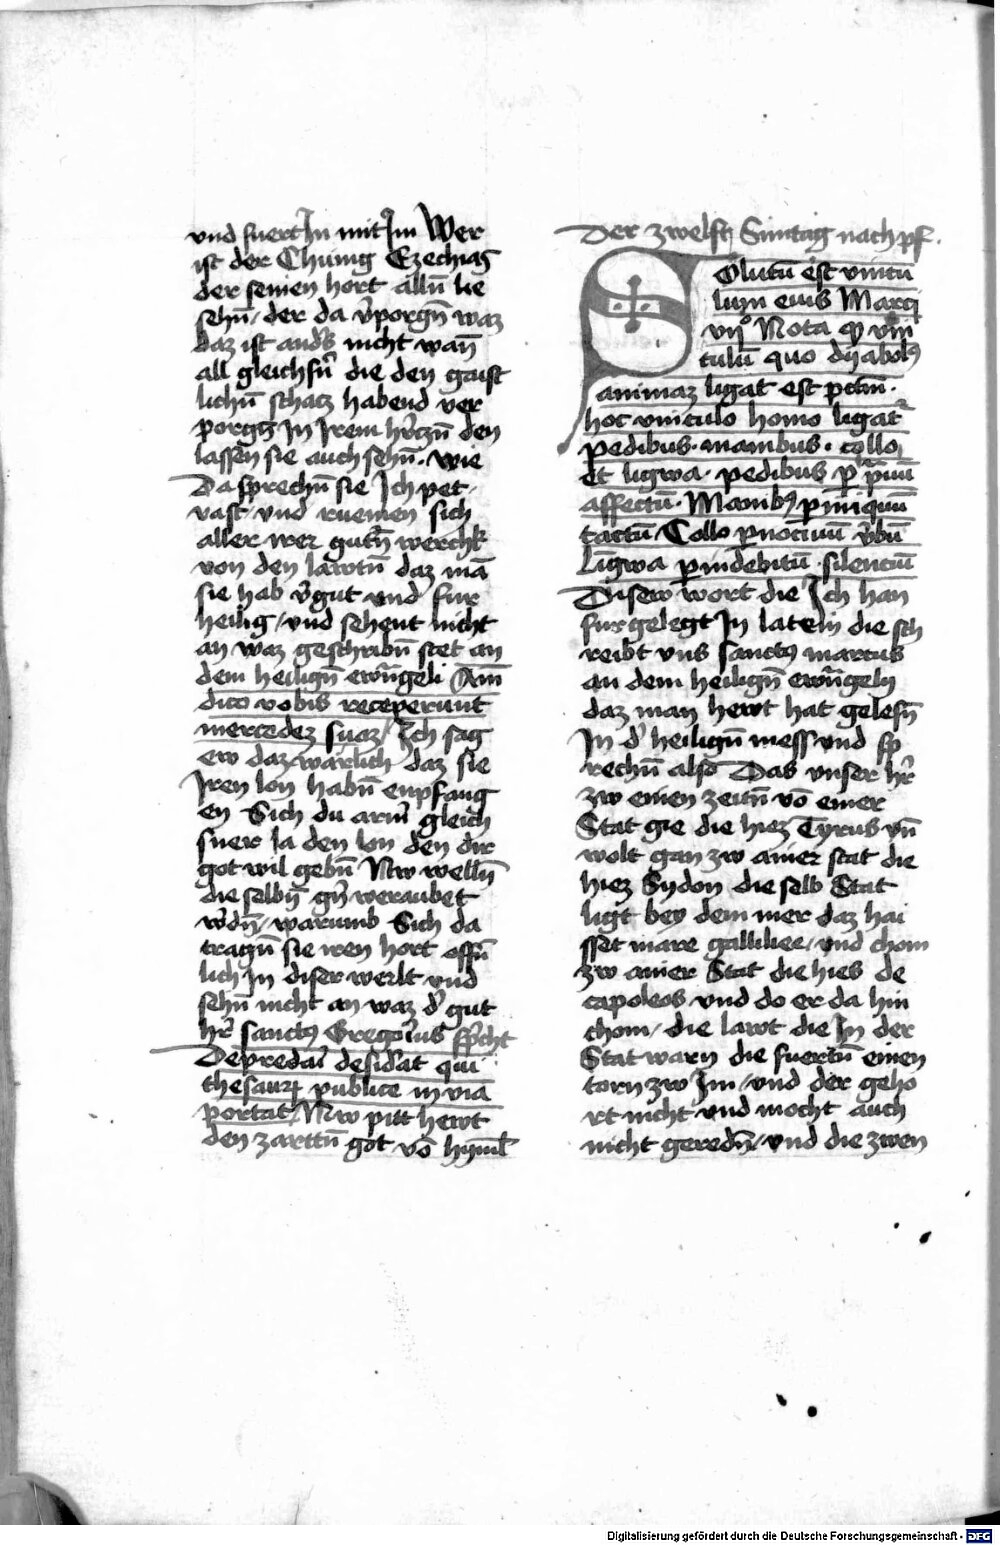 und fuert In mit Im Wer
ist der Chunig Ezechias
der seinen hort allñ lie
sehñ / der da v̾porgñ waz
daz ist and̾s nicht wañ
all gleichsñ die den gaist
lichñ schatz habend ver
porgñ In Irem h̾tzñ den
lassen sie auch sehñ · wie
Da sprechñ sie Ich pet
vast und ruemen sich
aller irer gutñ werchk
von den lawtñ daz mā
sie hab v̾gut und fur
heilig / und sehent nicht
an waz geschribñ stet an
dem heilignñ ewãngeli Am̄
dico vobis receperunt
mercedez suaz / Ich sag
ew daz warlich daz sie
Iren lon habñ enpfang
en Sich du arm̄ gleich
sner la den lon den dir
got wil gebñ Nw wellñ
die selbñ g̾n weraubet
w̾dñ / warumb Sich da
tragñ sie iren hort offñ
lich In diser werlt und
sehñ nicht an waz d̾ gut
h̾r sanctꝰ Gregorius sp̾cht
Depredari desid̾at qui
thesauꝝ publice in via
portat / Nw pitt hewt
den zarttñ got vō hyml̄
Der zwelft Suntag nach pf.
Solutū est vincu
lum eius Marci
vijᵒ Nota qꝫ vin
culū quo dyabolꝰ
animaz ligat est pctm̄ ·
hoc vinculo homo ligat᷑
pedibus · manibus · collo
et ligwa · pedibus ꝑ prauū
affectū · Manibꝰ ꝑ iniquū
tactū / Collo ꝑ nociuū v̾bū
Lingwa ꝑ indebitū silenciū
Disew wort die Ich han
fur gelegt In latein die sch
reibt uns sanctꝰ marcus
an dem heilignñ ewãngelij
daz man hewt hat gelesñ
In d̾ heilignñ mess und sp
rechñ also Das unser h̾r
zw einen zeitñ vō einer
Stat gie die hiez Tyrus vñ
wolt gan zw ainer stat die
hiez Sydon die selb Stat
ligt bey dem mer daz hai
sset mare gallilee / und chom
zw ainer Stat die hies de
capoleos und do er da hin
chom / die lawt die In der
Stat warn die fuertñ einen
torn zw Im / und der geho
rt nicht und mocht auch
nicht geredñ / und die zwen
Digitalisierung gefördert durch die Deutsche Forschungsgemeinschaft - DFG